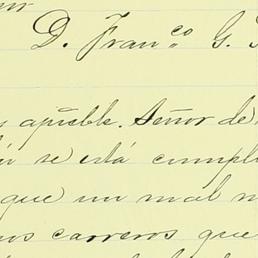 D. Franco G.
apſible. Señor de
se está cumpli
que un mal m
os carreros que